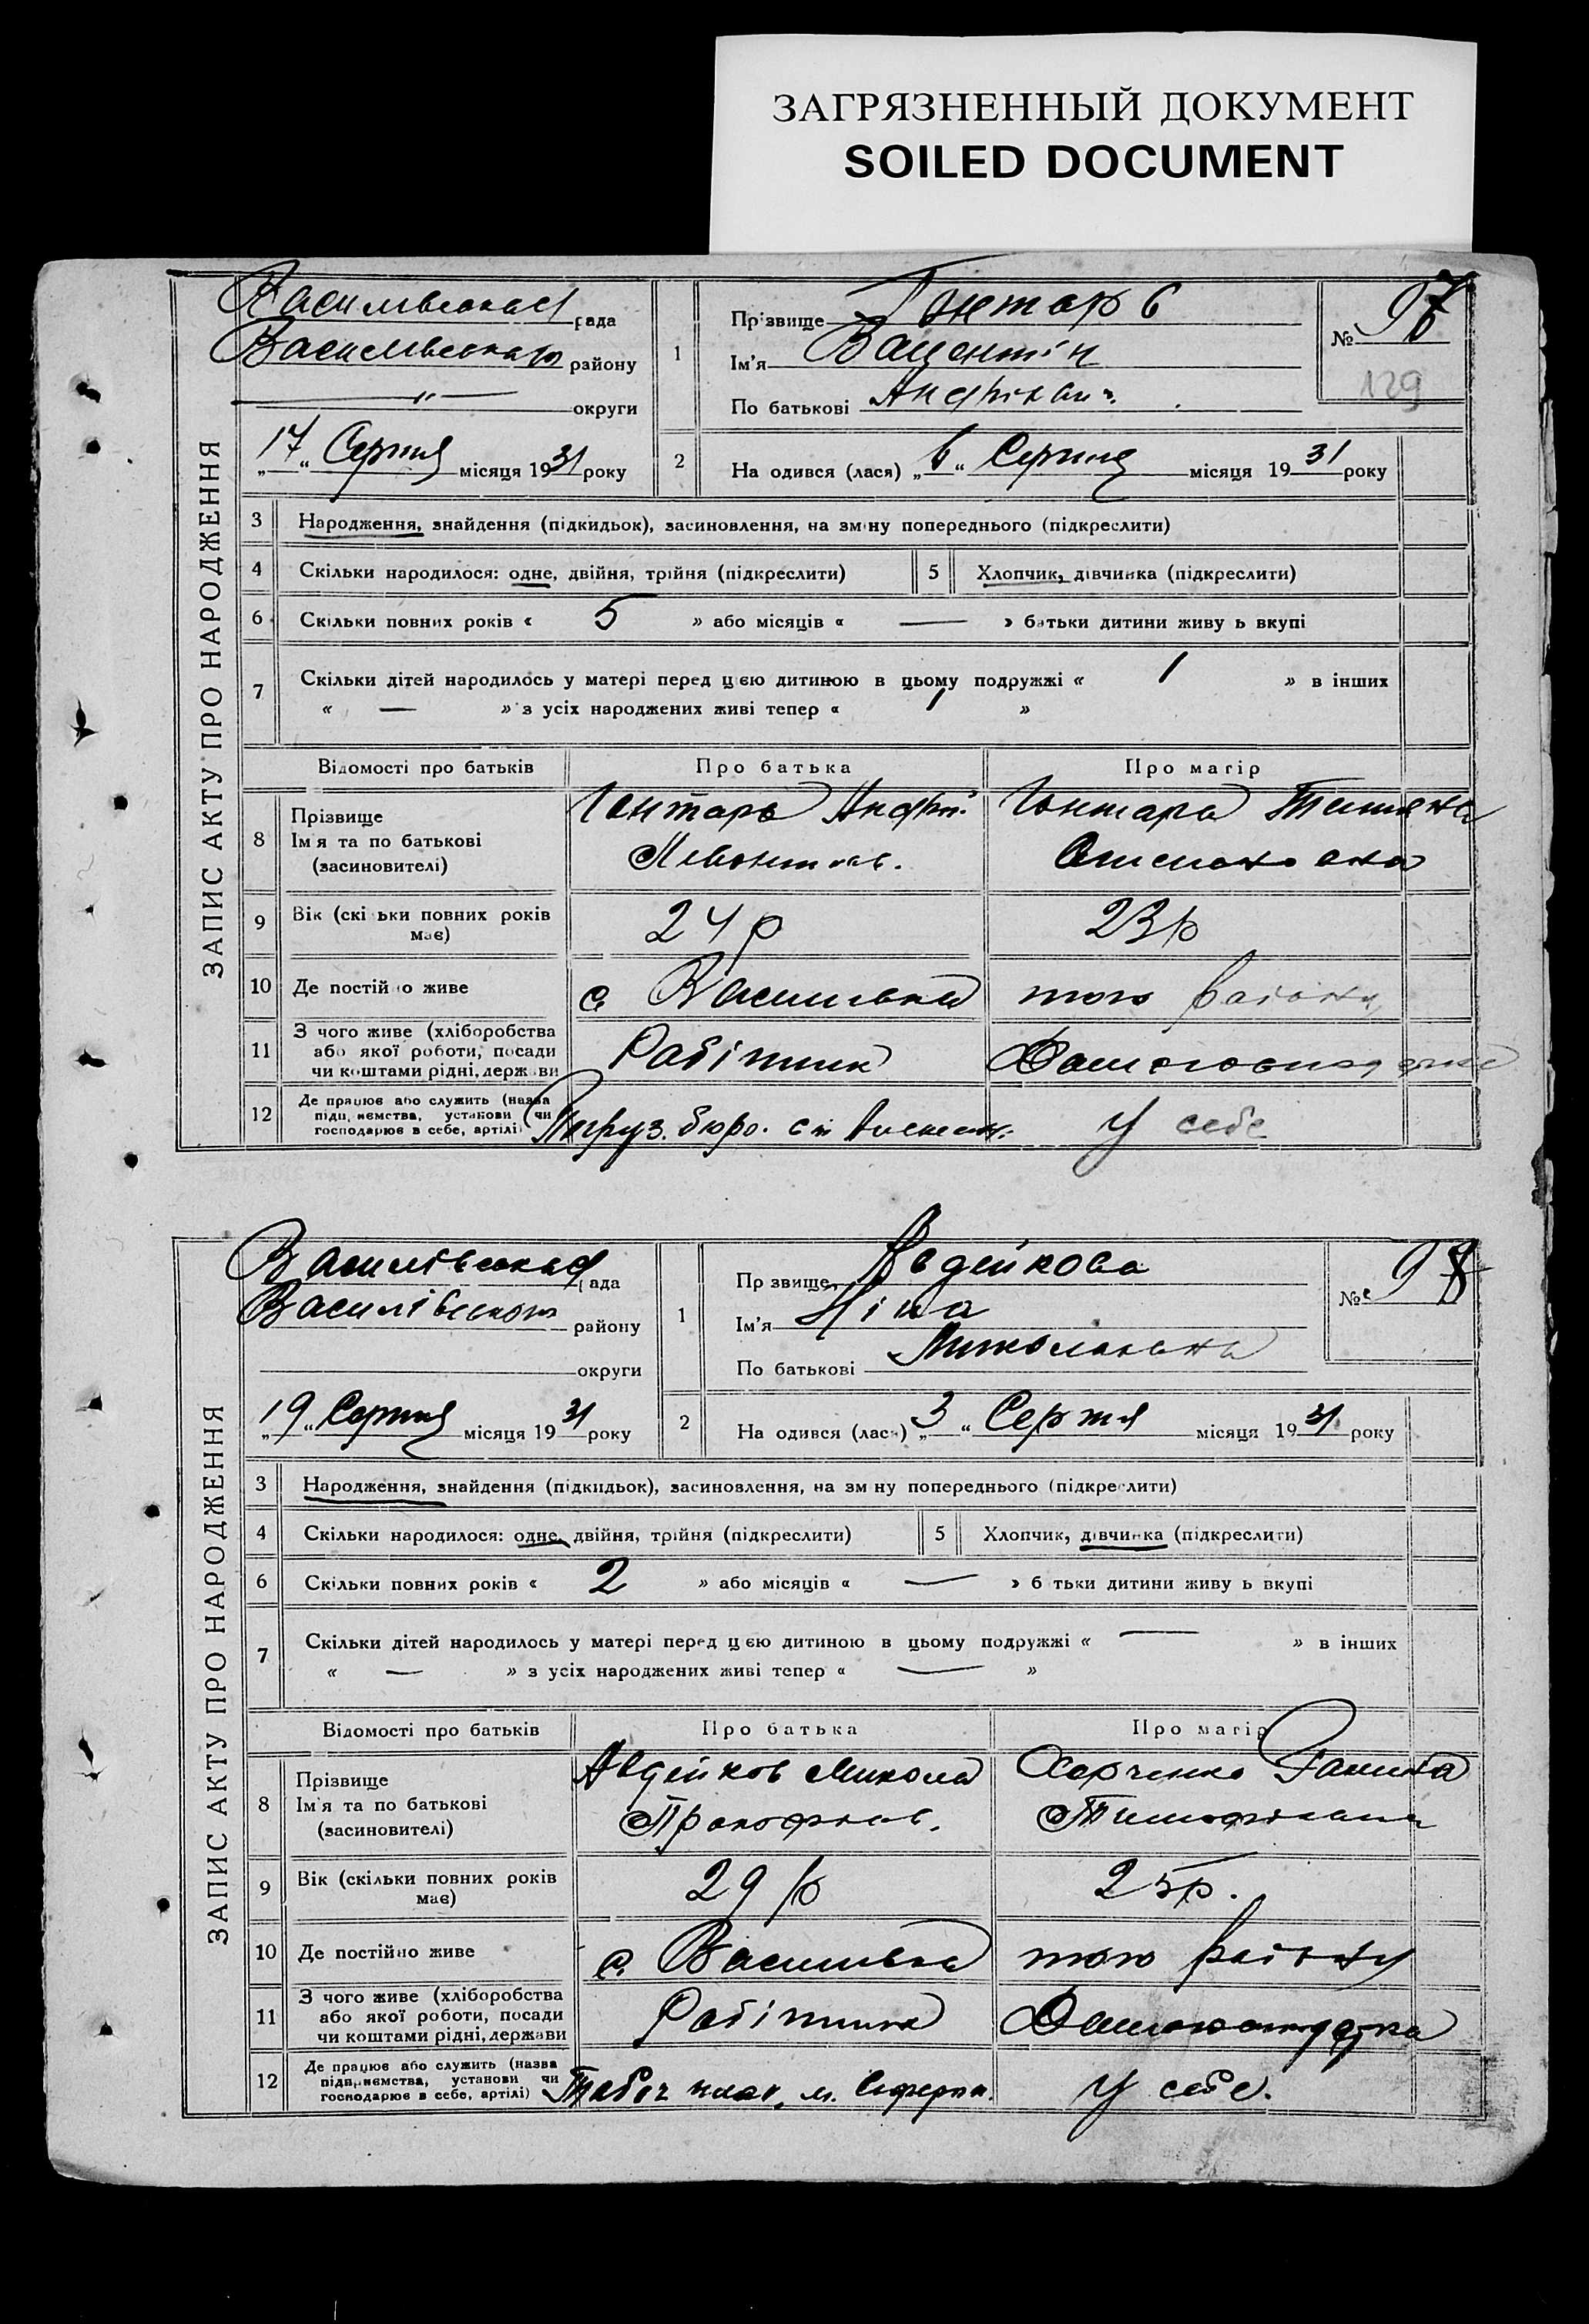 ЗАГРЯЗНЕННЫЙ ДОКУМЕНТ
SOILED DOCUMENT
ЗАПИС АКТУ ПРО НАРОДЖЕННЯ
Василівська рада
Василівського району
—"— округи
„17“ Серпня місяця 1931 року
1
Прізвище Гонтарь
Ім'я Валентін
По батькові
№ 97
129
2
На одився (лася) „6“ Серпня місяця 1931 року
3 Народження, знайдення (підкидьок), засиновлення, на зміну попереднього (підкреслити)
4 Скільки народилося: одне, двійня, трійня (підкреслити) 5 Хлопчик, дівчинка (підкреслити)
6 Скільки повних років « 5 » або місяців « — » батьки дитини живу ь вкупі
7 Скільки дітей народилось у матері перед цією дитиною в цьому подружжі « 1 » в інших
« — » з усіх народжених живі тепер « 1 »
Відомості про батьків Про батька Про матір
8 Прізвище
Ім'я та по батькові
(засиновителі)
Гонтарь Андрій
Гонтарь Тетяна
9 Вік (скі ьки повних років має) 24 р 23 р
10 Де постійно живе с Василівка того району
11 З чого живе (хліборобства або якої роботи, посади чи коштами рідні, держави Робітник Домогосподарка
12 Де працює або служить (назва підприємства, установи чи господарює в себе, артілі) Погруз. бюро. ст У себе
ЗАПИС АКТУ ПРО НАРОДЖЕННЯ
Василівська рада
Василівського району
округи
„19“ Серпня місяця 1931 року
1
Пр звище Авдейкова
Ім'я Ніна
По батькові Миколаївна
№ 98
2
На одився (лася) „3“ Серпня місяця 1931 року
3 Народження, знайдення (підкидьок), засиновлення, на зм ну попереднього (підкреслити)
4 Скільки народилося: одне, двійня, трійня (підкреслити) 5 Хлопчик, дівчинка (підкреслити)
6 Скільки повних років « 2 » або місяців « — » б тьки дитини живу ь вкупі
7 Скільки дітей народилось у матері перед цією дитиною в цьому подружжі « — » в інших
« — » з усіх народжених живі тепер « — »
Відомості про батьків Про батька Про матір
8 Прізвище
Ім'я та по батькові
(засиновителі)
Авдейков Микола
Прокофієв.
Харченко
9 Вік (скільки повних років має) 29 р 25 р.
10 Де постійно живе с. Василівка того району
11 З чого живе (хліборобства або якої роботи, посади чи коштами рідні, держави Робітник Домогосподарка
12 Де працює або служить (назва підприємства, установи чи господарює в себе, артілі) У себе.